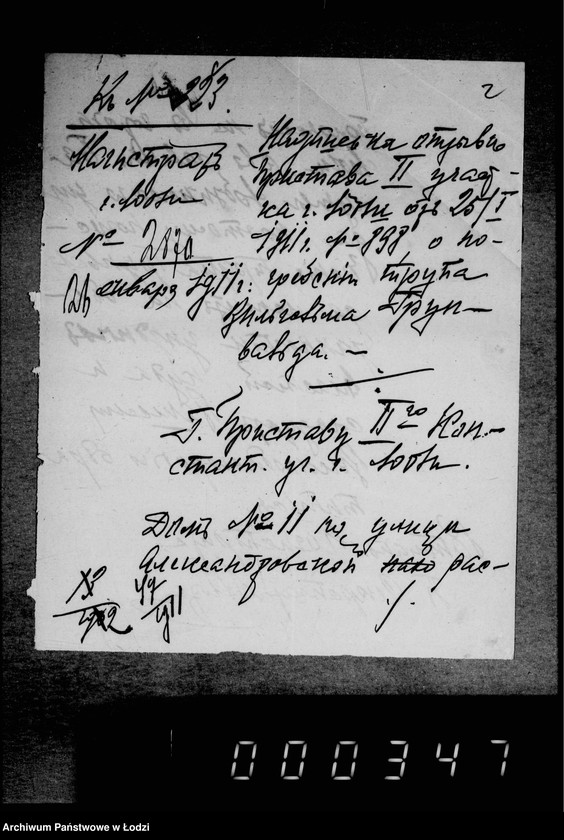 Къ № 223.
2
Магистратъ
г. Лодзи
№ 2870
26 января 1911 г.
Надпись на отзывъ
Пристава II участ-
ка г. Лодзи отъ 25/I
1911 г. № 898, о по-
гребеніи трупа
Вильгельма Грун-
вальда. —
Г. Приставу II го Кон-
стант. уч. г. Лодзи.
Домъ № 11 по улицѣ
Александровской рас-
47
1911
000347
Archiwum Państwowe w Łodzi